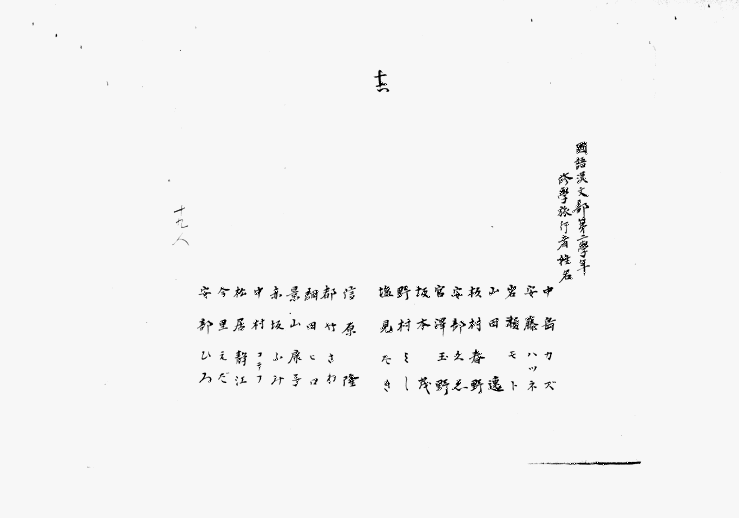 十六
國語漢文部第二學年
修學旅行者姓名
中島カズ
安藤ハツネ
岩瀬モト
山田遠
板村春野
安部文悉
宮澤玉野
坂本茂
野村よし
塩見たき
信原隆
都竹さわ
細田とロ
景山康子
赤坂ふみ
中村コキフ
松居靜江
今里えだ
安部ひろ
十九人